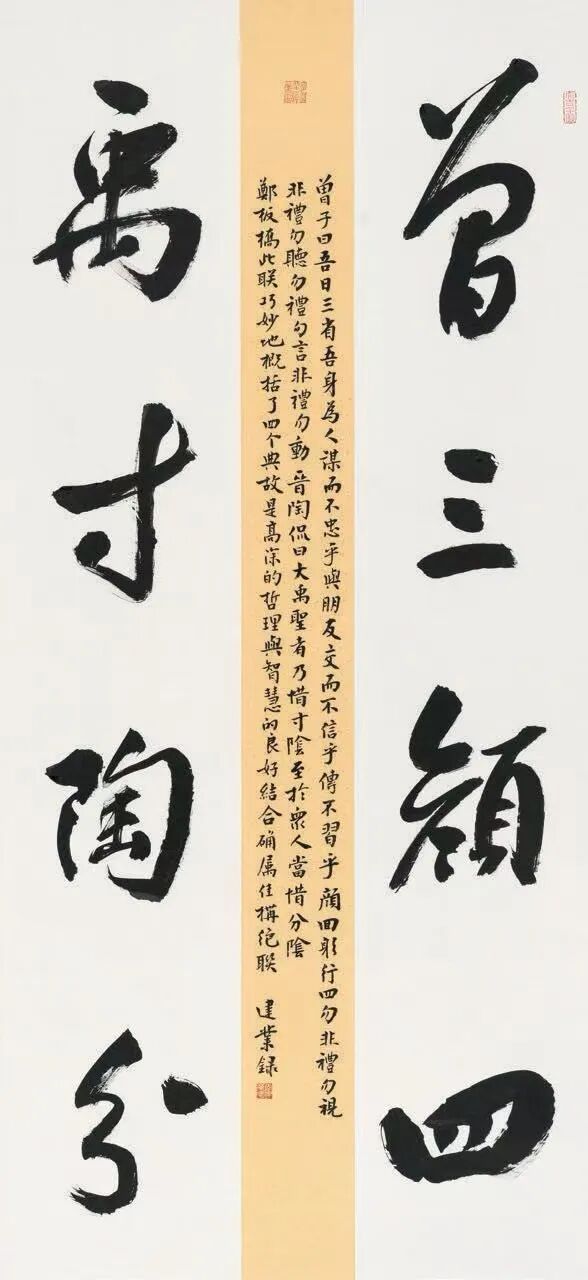 曾三顔四
曾子曰吾日三省吾身為人謀而不忠乎與朋友交而不信乎傳不習乎顔回躬行四勿非禮勿視
非禮勿聽勿禮勿言非禮勿動晉陶侃曰大禹聖者乃惜寸陰至於衆人當惜分陰
鄭板橋此联巧妙地概括了四个典故是高深的哲理與智慧的良好結合确属佳構绝联 建業録
禹寸陶分